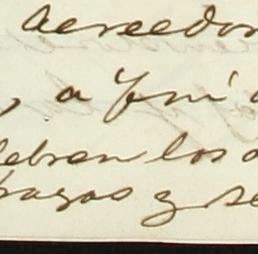 acreedor
, a fin d
lebran los a
pagos y se